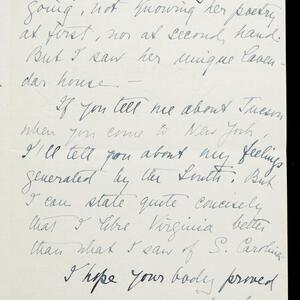 going, not knowing her poetry
at first, nor at second, hand.
But I saw her unique Laven-
dar house. —
If you tell me about Tucson
when you come to New York,
I'll tell you about my feelings
generated by the South. But
I can state quite concisely
that I like Virginia better
than what I saw of S. Carolina.
I hope your body proved